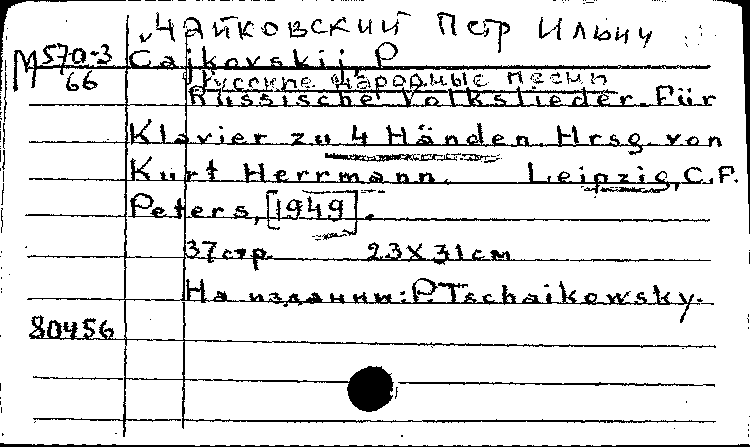 Чайковский Петр Ильич
М 570-3 Cajkovskij, P
66
Русские народные песни
Russische Volkslieder. Für
Klavier zu 4 Händen. Hrsg. von
Kurt Herrmann. Leipzig, C.F.
Peters, [1949].
37стр. 23X31см
На издании: P. Tschaikowsky.
80456